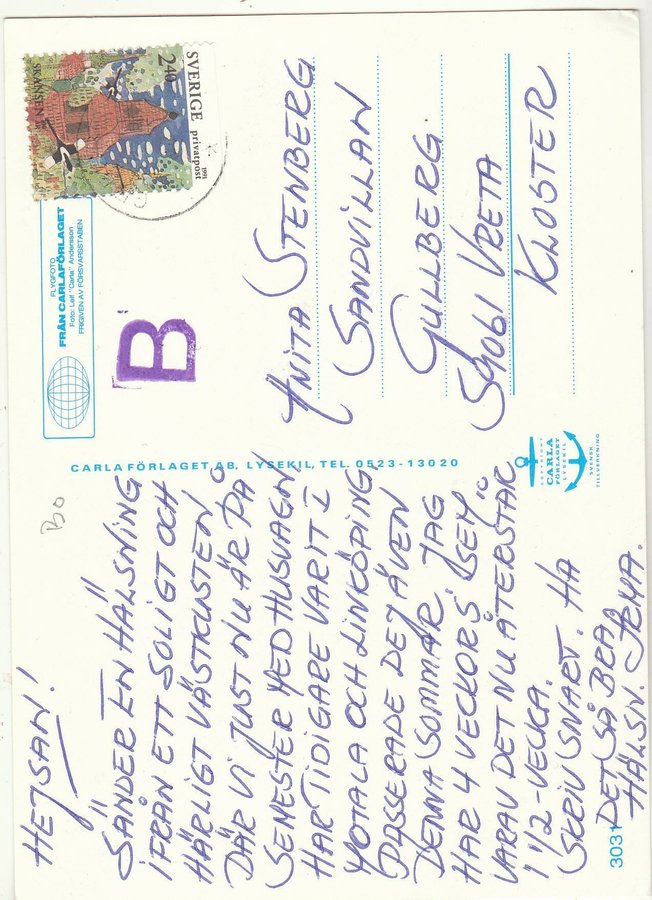 HEJSAN!
SÄNDER EN HÄLSNING
IFRÅN ETT SOLIGT OCH
HÄRLIGT VÄSTKUSTEN
DÄR VI JUST NU ÄR PÅ
SEMESTER MED HUSVAGN
HAR TIDIGARE VARIT I
MOTALA OCH LINKÖPING,
PASSERADE DEJ ÄVEN
DENNA SOMMAR. JAG
HAR 4 VECKORS "SEM"
VARAV DET NU ÅTERSTÅR
1 1/2-VECKA.
SKRIV SNART. HA
DET SÅ BRA
HÄLSN. IRMA.
3031
CARLAFÖRLAGET AB, LYSEKIL, TEL. 0523-13020
COPYRIGHT
CARLA
FÖRLAGET
LYSEKIL
SVENSK
TILLVERKNING
FLYGFOTO
FRÅN CARLAFÖRLAGET
Foto: Leif "Carla" Andersson
FRIGIVEN AV FÖRSVARSSTABEN
B
SVERIGE privatpost 1991
2.40
SKANSEN
ANITA STENBERG
SANDVILLAN
GULLBERG
59061 VRETA
KLOSTER